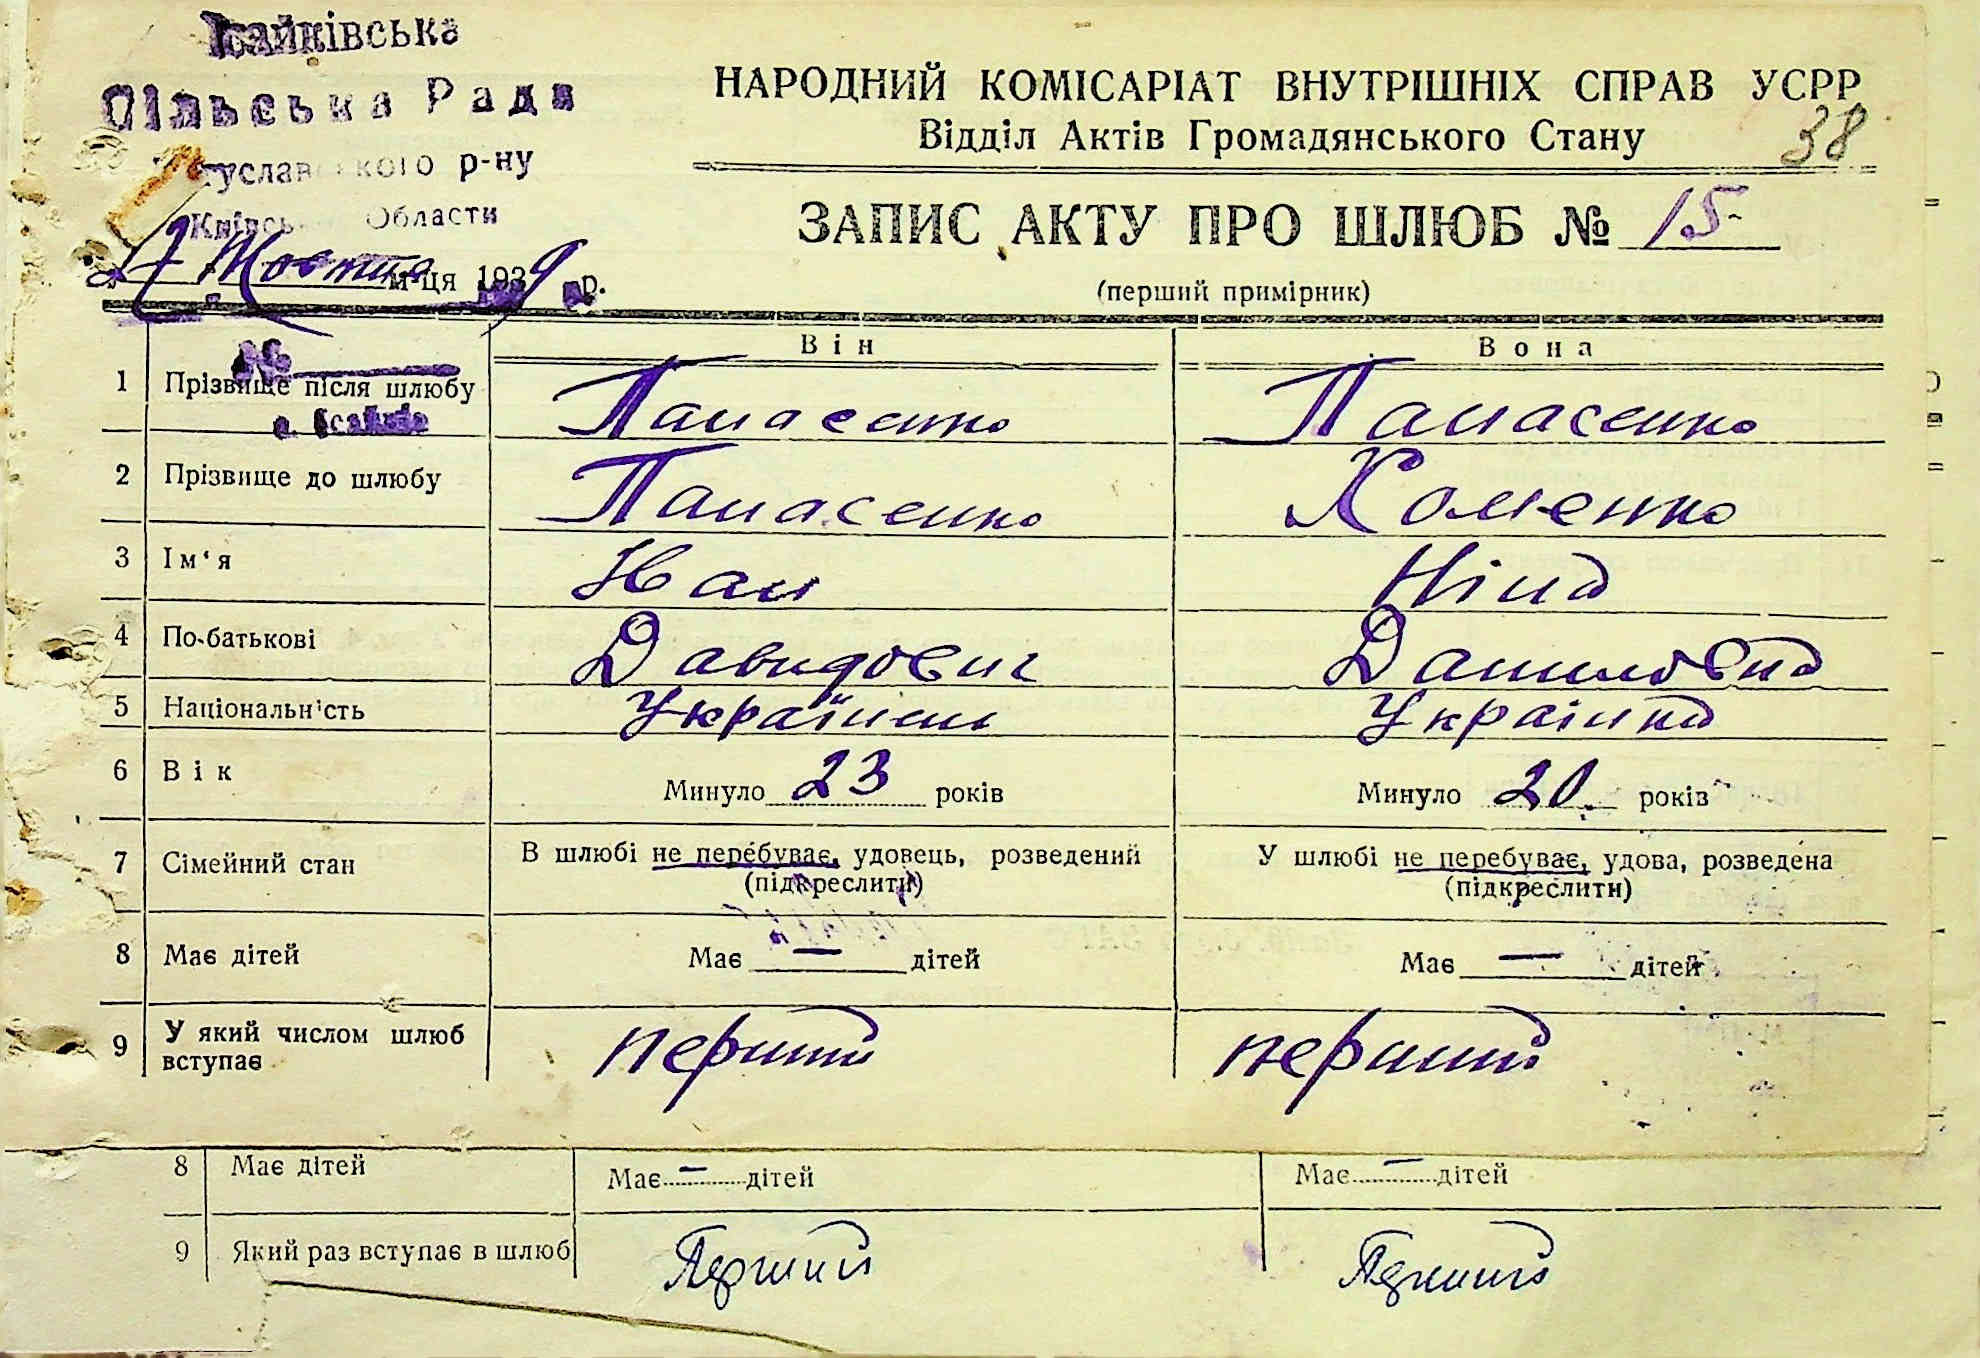 Ісайківська
Сільська Рада
р-ну
Київської Области
17 Жовтня м-ця 1939 р.
НАРОДНИЙ КОМІСАРІАТ ВНУТРІШНІХ СПРАВ УСРР
Відділ Актів Громадянського Стану
38
ЗАПИС АКТУ ПРО ШЛЮБ № 15
(перший примірник)
№
с. Ісайків
Він Вона
1 Прізвище після шлюбу Панасенко Панасенко
2 Прізвище до шлюбу Панасенко Хоменко
3 Ім'я Иван Ніна
4 По-батькові Давидович Даниловна
5 Національн'сть Українець Українка
6 Вік Минуло 23 років Минуло 20 років
7 Сімейний стан В шлюбі не перебуває, удовець, розведений У шлюбі не перебуває, удова, розведена
(підкреслити) (підкреслити)
8 Має дітей Має — дітей Має — дітей
9 У який числом шлюб
вступає перший перший
8 Має дітей Має — дітей Має — дітей
9 Який раз вступає в шлюб Перший Перший